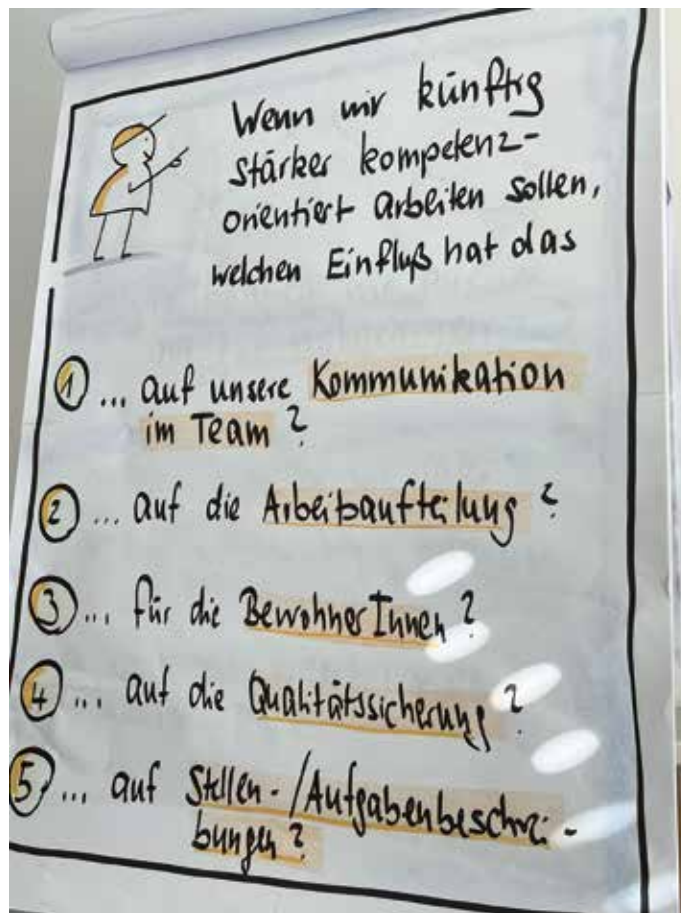 Wenn wir künftig
stärker kompetenz-
orientiert arbeiten sollen,
welchen Einfluß hat das
1 ... auf unsere Kommunikation
im Team ?
2 ... auf die Arbeitsaufteilung ?
3 ... für die BewohnerInnen ?
4 ... auf die Qualitätssicherung ?
5 ... auf Stellen-/Aufgabenbeschrei-
bungen ?